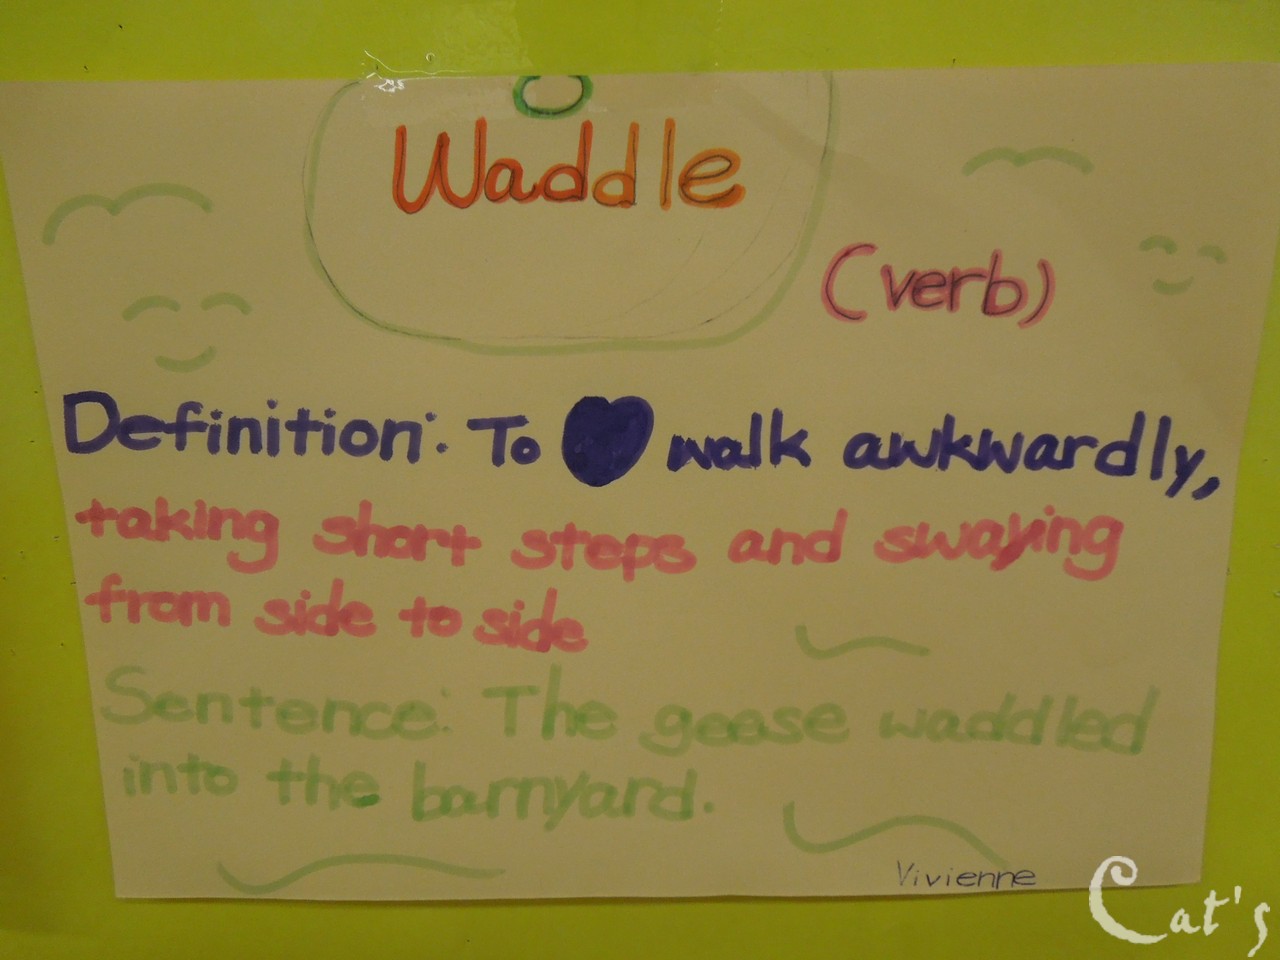 Waddle
(verb)
Definition: To walk awkwardly,
taking short steps and swaying
from side to side
Sentence: The geese waddled
into the barnyard.
Vivienne
Cat's